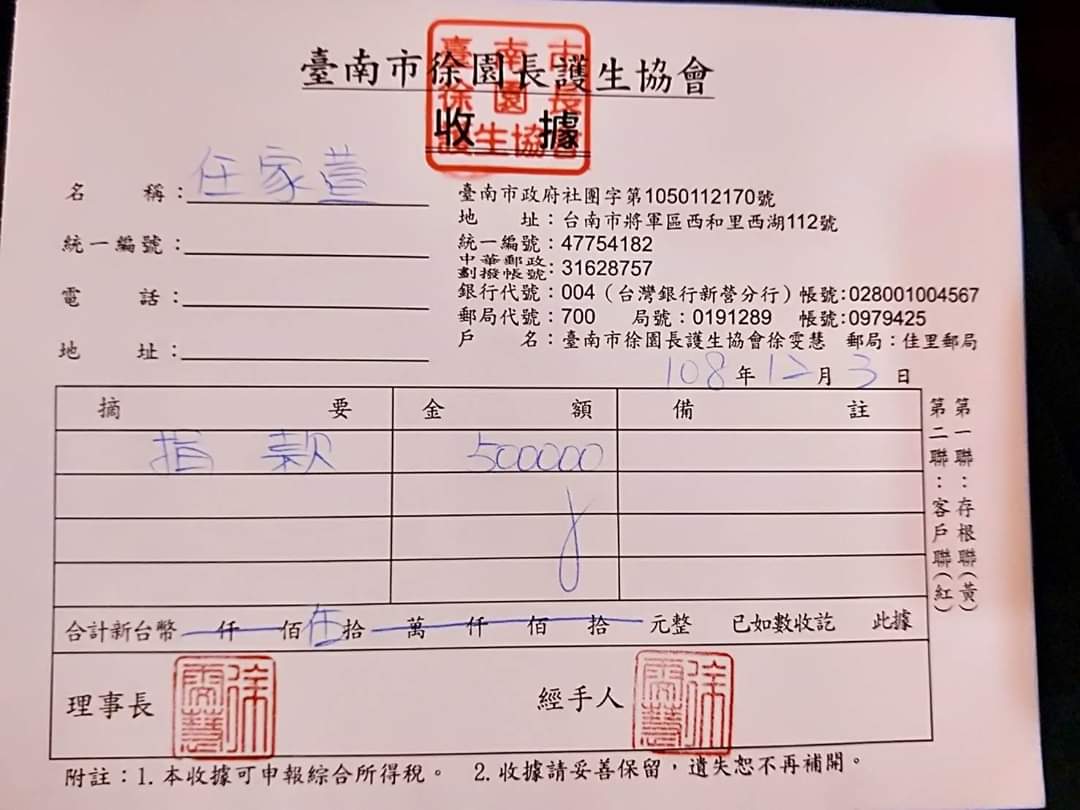 臺南市徐園長護生協會
臺南市
徐園長
護生協會
收據
名稱：任家萱
臺南市政府社團字第1050112170號
地址：台南市將軍區西和里西湖112號
統一編號：
統一編號：47754182
中華郵政劃撥帳號：31628757
電話：
銀行代號：004（台灣銀行新營分行）帳號:028001004567
郵局代號：700 局號：0191289 帳號:0979425
地址：
戶名：臺南市徐園長護生協會徐雯慧 郵局：佳里郵局
108年12月3日
摘要 金額 備註
捐款 500000
第一聯：存根聯(黃)
第二聯：客戶聯(紅)
合計新台幣 仟 佰伍拾 萬 仟 佰 拾 元整 已如數收訖 此據
理事長 徐雯慧 經手人 徐雯慧
附註：1.本收據可申報綜合所得稅。 2.收據請妥善保留，遺失恕不再補開。